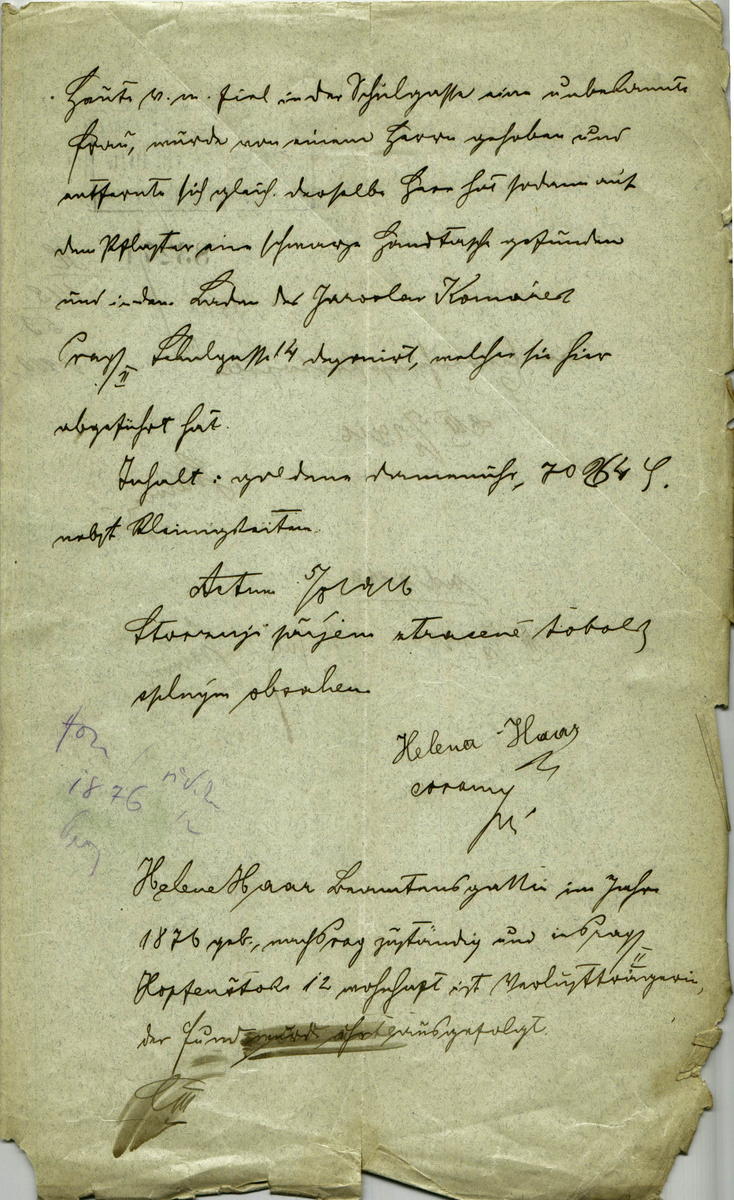 Heute v. m. fiel in der Schulgasse eine unbekannte
Frau, wurde von einem Herrn gehoben und
entfernte sich gleich. derselbe Herr hat sodann auf
dem Pflaster eine schwarze Handtasche gefunden
und in den Laden des Jaroslav Komárek
Prag II Schulgasse 14 deponirt, welcher sie hier
abgeführt hat.
Inhalt: goldene damenuhr, 70 K 64 h.
nebst Kleinigkeiten.
Actum
Stvrzuji příjem ztracené tobolky
s plným obsahem
Helena Haar
coram
1876
Prag
Helene Haar Beamtensgattin im Jahre
1876 geb., nach Prag zuständig und in Prag II
Hopfenstok 12 wohnhaft ist Verlustträgerin,
der Fund wurde ihr ausgefolgt.